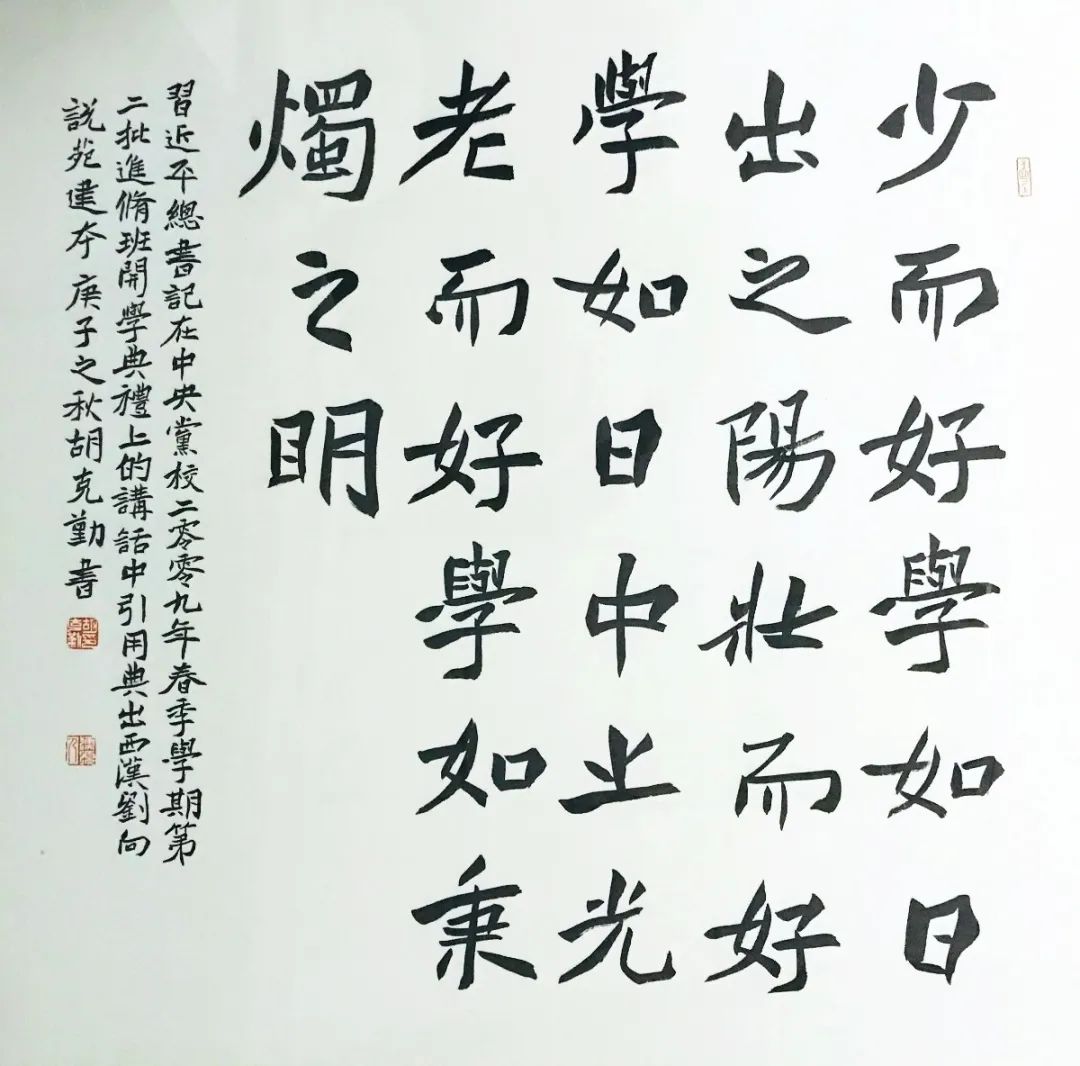 少而好學如日
出之陽壯而好
學如日中之光
老而好學如秉
燭之明
習近平總書記在中央黨校二零零九年春季學期第
二批進脩班開學典禮上的講話中引用典出西漢劉向
說苑建本庚子之秋胡克勤書